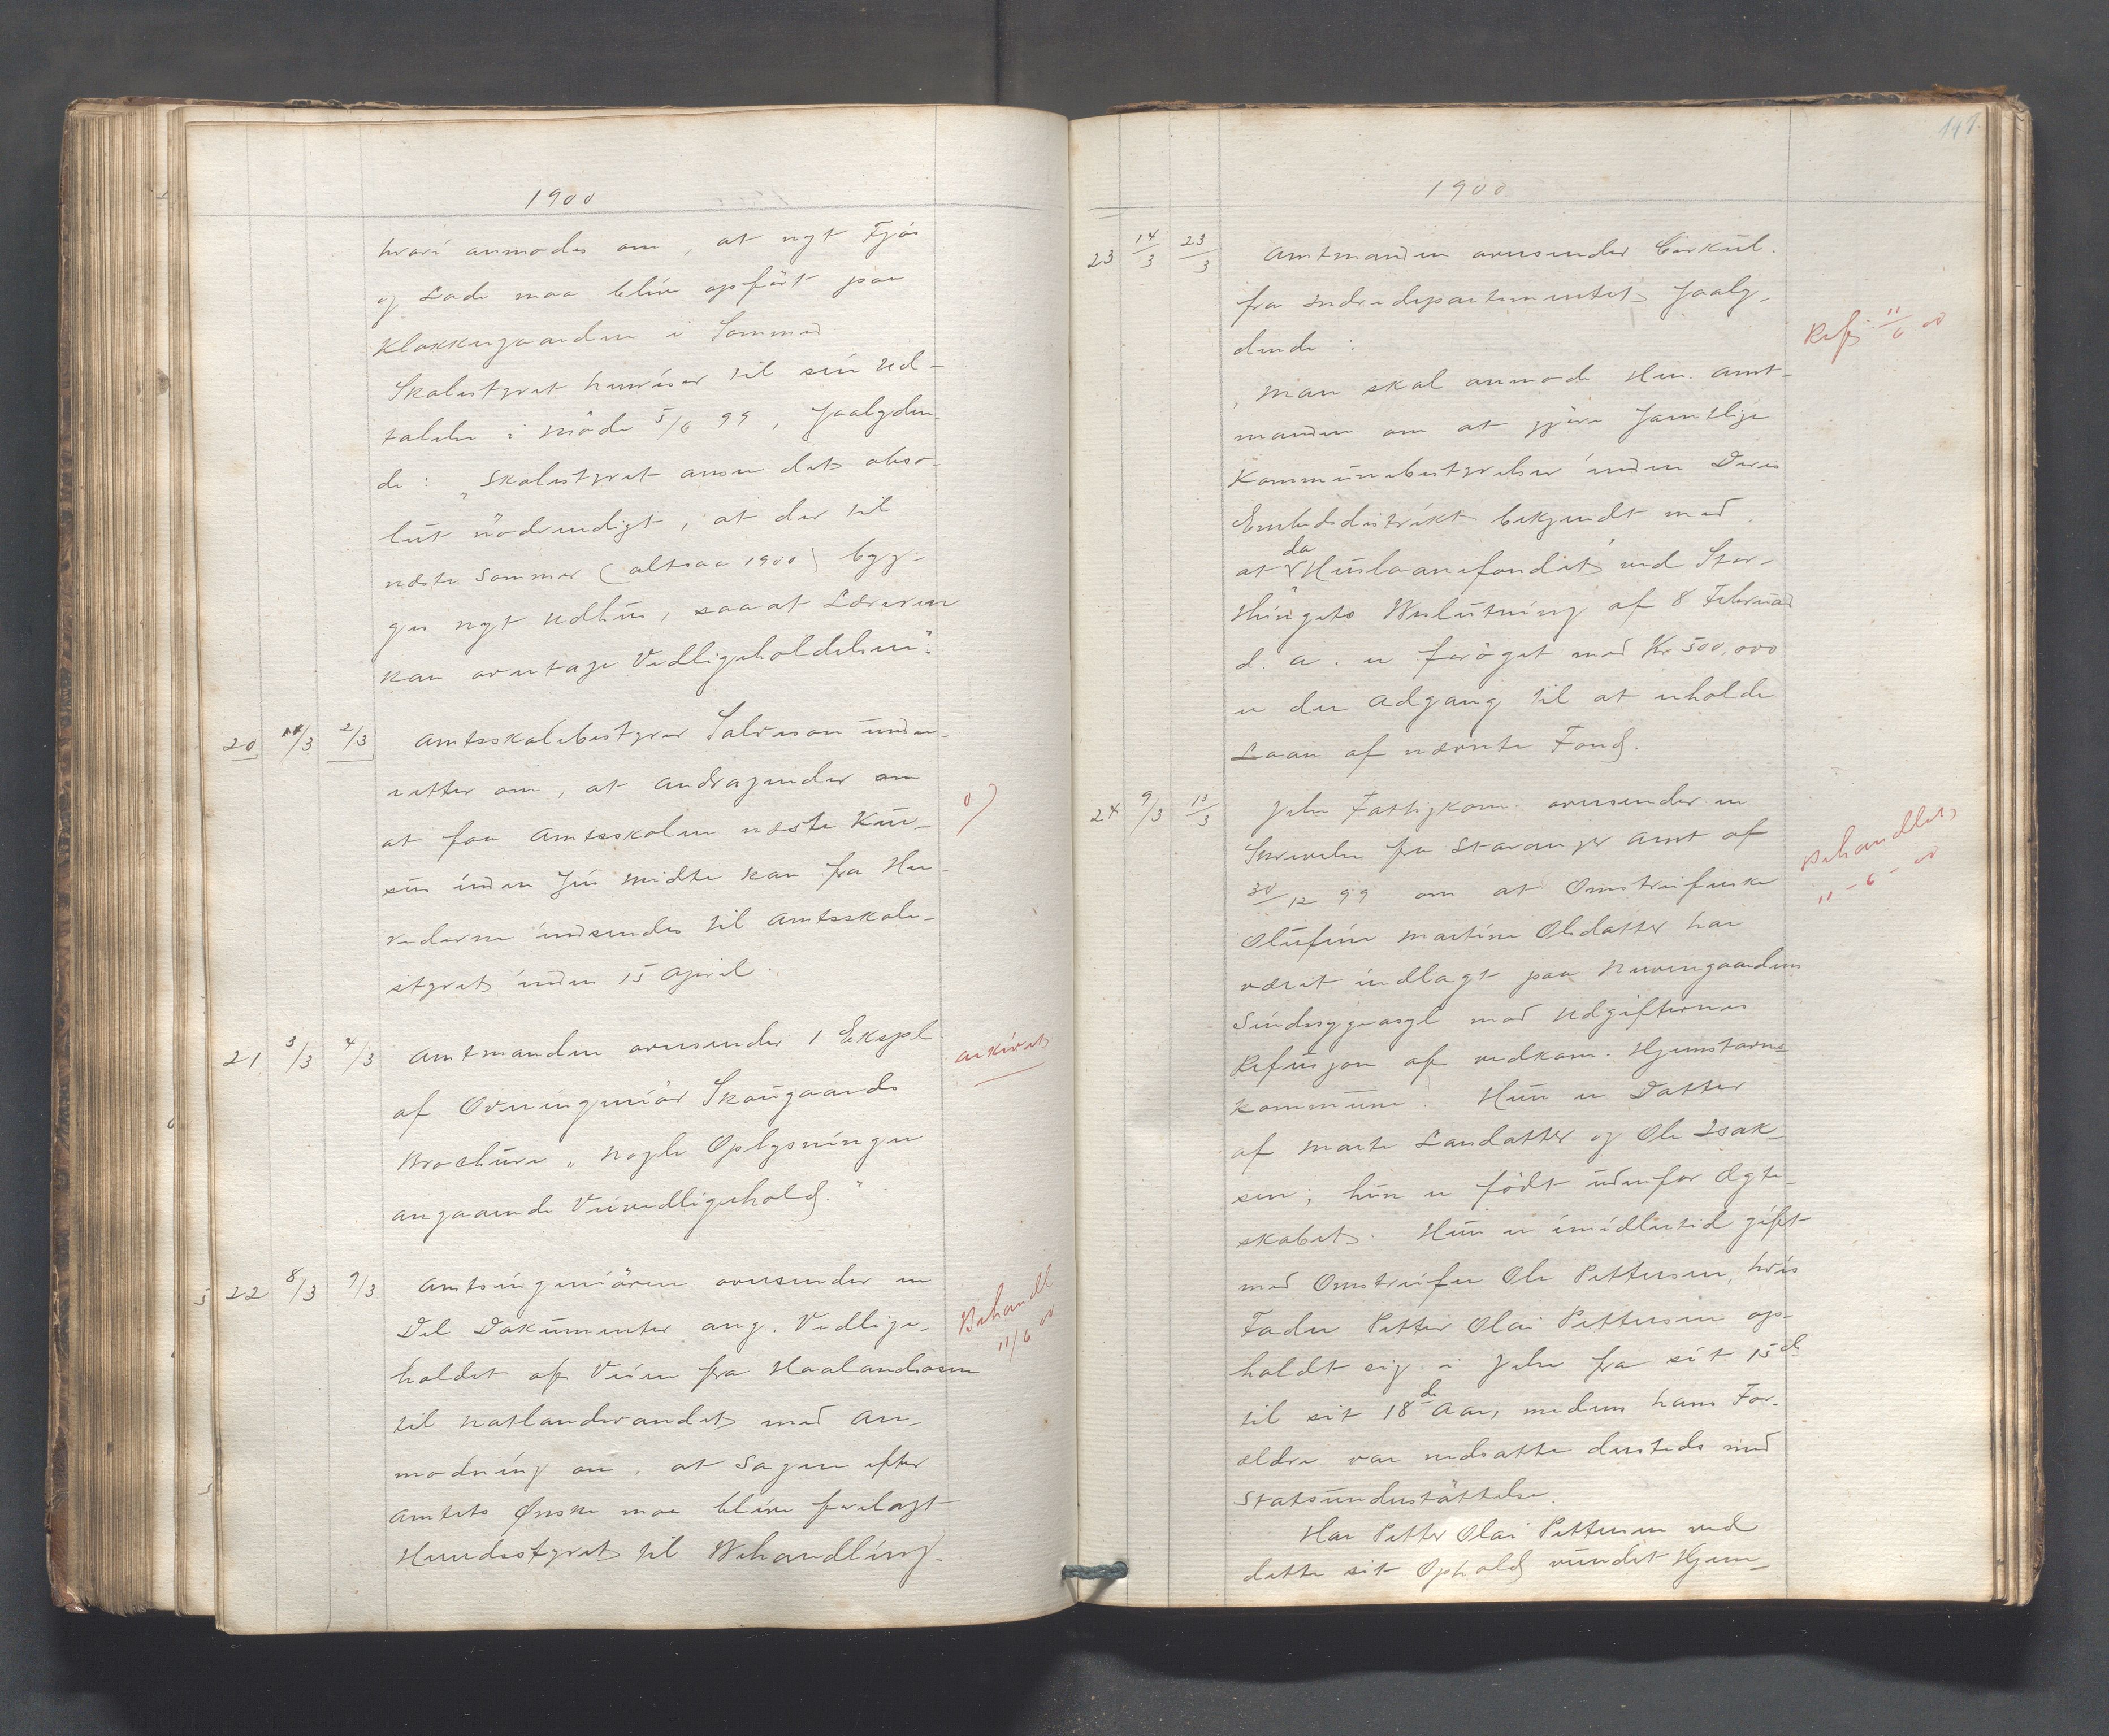 1900
hvori anmodes om, at nyt Fjøs
og Lade maa blive opført paa
Klokkergaarden i Sommer.
Skolestyret henviser til sin Ud-
talelse i Møde 5/6 99, saalyden-
de: "Skolestyret anser det abso-
lut nödvendigt, at der til
næste Sommer (altsaa 1900) byg-
ges nyt Udhus, saaat Læreren
kan overtage Vedligeholdelsen".
20 1/3 2/3 Amtsskolebestyrer Salveson under-
retter om, at Andragender om
at faa Amtsskolen næste Kur-
sus inden sin Midte kan fra Her-
rederne indsendes til Amtsskole-
styret inden 15 April.
21 3/3 4/3 Amtmanden oversender 1 Ekspl.
arkivet
af Overingeniör Skougaards
Brochure "Nogle Oplysninger
angaaende Veivedligehold."
22 8/3 9/3 Amtsingeniören oversender en
Behandl
11/6 00
Del Dokumenter ang. Vedlige-
holdet af Veien fra Haalandsosen
til Natlandsvandet med An-
modning om, at Sagen efter
Amtets Ønske maa blive forelagt
Herredsstyret til Behandling.
147
1900
23 14/3 23/3 Amtmanden oversender Cirkul.
fra Indredepartementet saaly-
Refr 11/6 00
dende:
"Man skal anmode Hr. Amt-
manden om at gjøre samtlige
Kommunebestyrelser inden Deres
Embedsdistrikt bekjendt med,
at da Husloanefondet ved Stor-
thingets Beslutning af 8 Februar
d. A. er forøget med Kr 500,000
er der Adgang til at erholde
Laan af nævnte Fond.
24 9/3 13/3 Jelse Fattigkom. oversender en
Behandlet
11-6-00
Skrivelse fra Stavanger Amt af
30/12 99 om at Omstreiferske
Olufine Martine Olsdatter har
været indlagt paa Nevengaardens
Sindssygeasyl mod Udgifternes
Refusjon af vedkom. Hjemstavns-
kommune. Hun er Datter
af Marte Larsdatter og Ole Isak-
sen; hun er født udenfor Ægte-
skabet. Hun er imidlertid gift
med Omstreifer Ole Pettersen, hvis
Fader Petter Olai Pettersen op-
holdt sig i Jelse fra sit 15de
til sit 18de Aar, medens hans For-
ældre var nedsatte dersteds med
Statsunderstöttelse.
Har Petter Olai Pettersen ved
dette sit Ophold vundet Hjem-